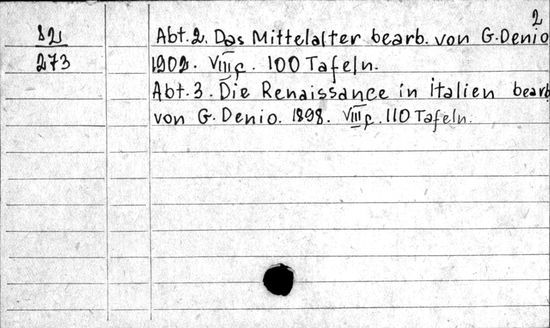 2
82 Abt. 2. Das Mittelalter bearb. von G. Denio
273 1902. VIII c. 100 Tafeln.
Abt. 3. Die Renaissance in Italien bearb
von G. Denio. 1898. VIII c. 110 Tafeln.